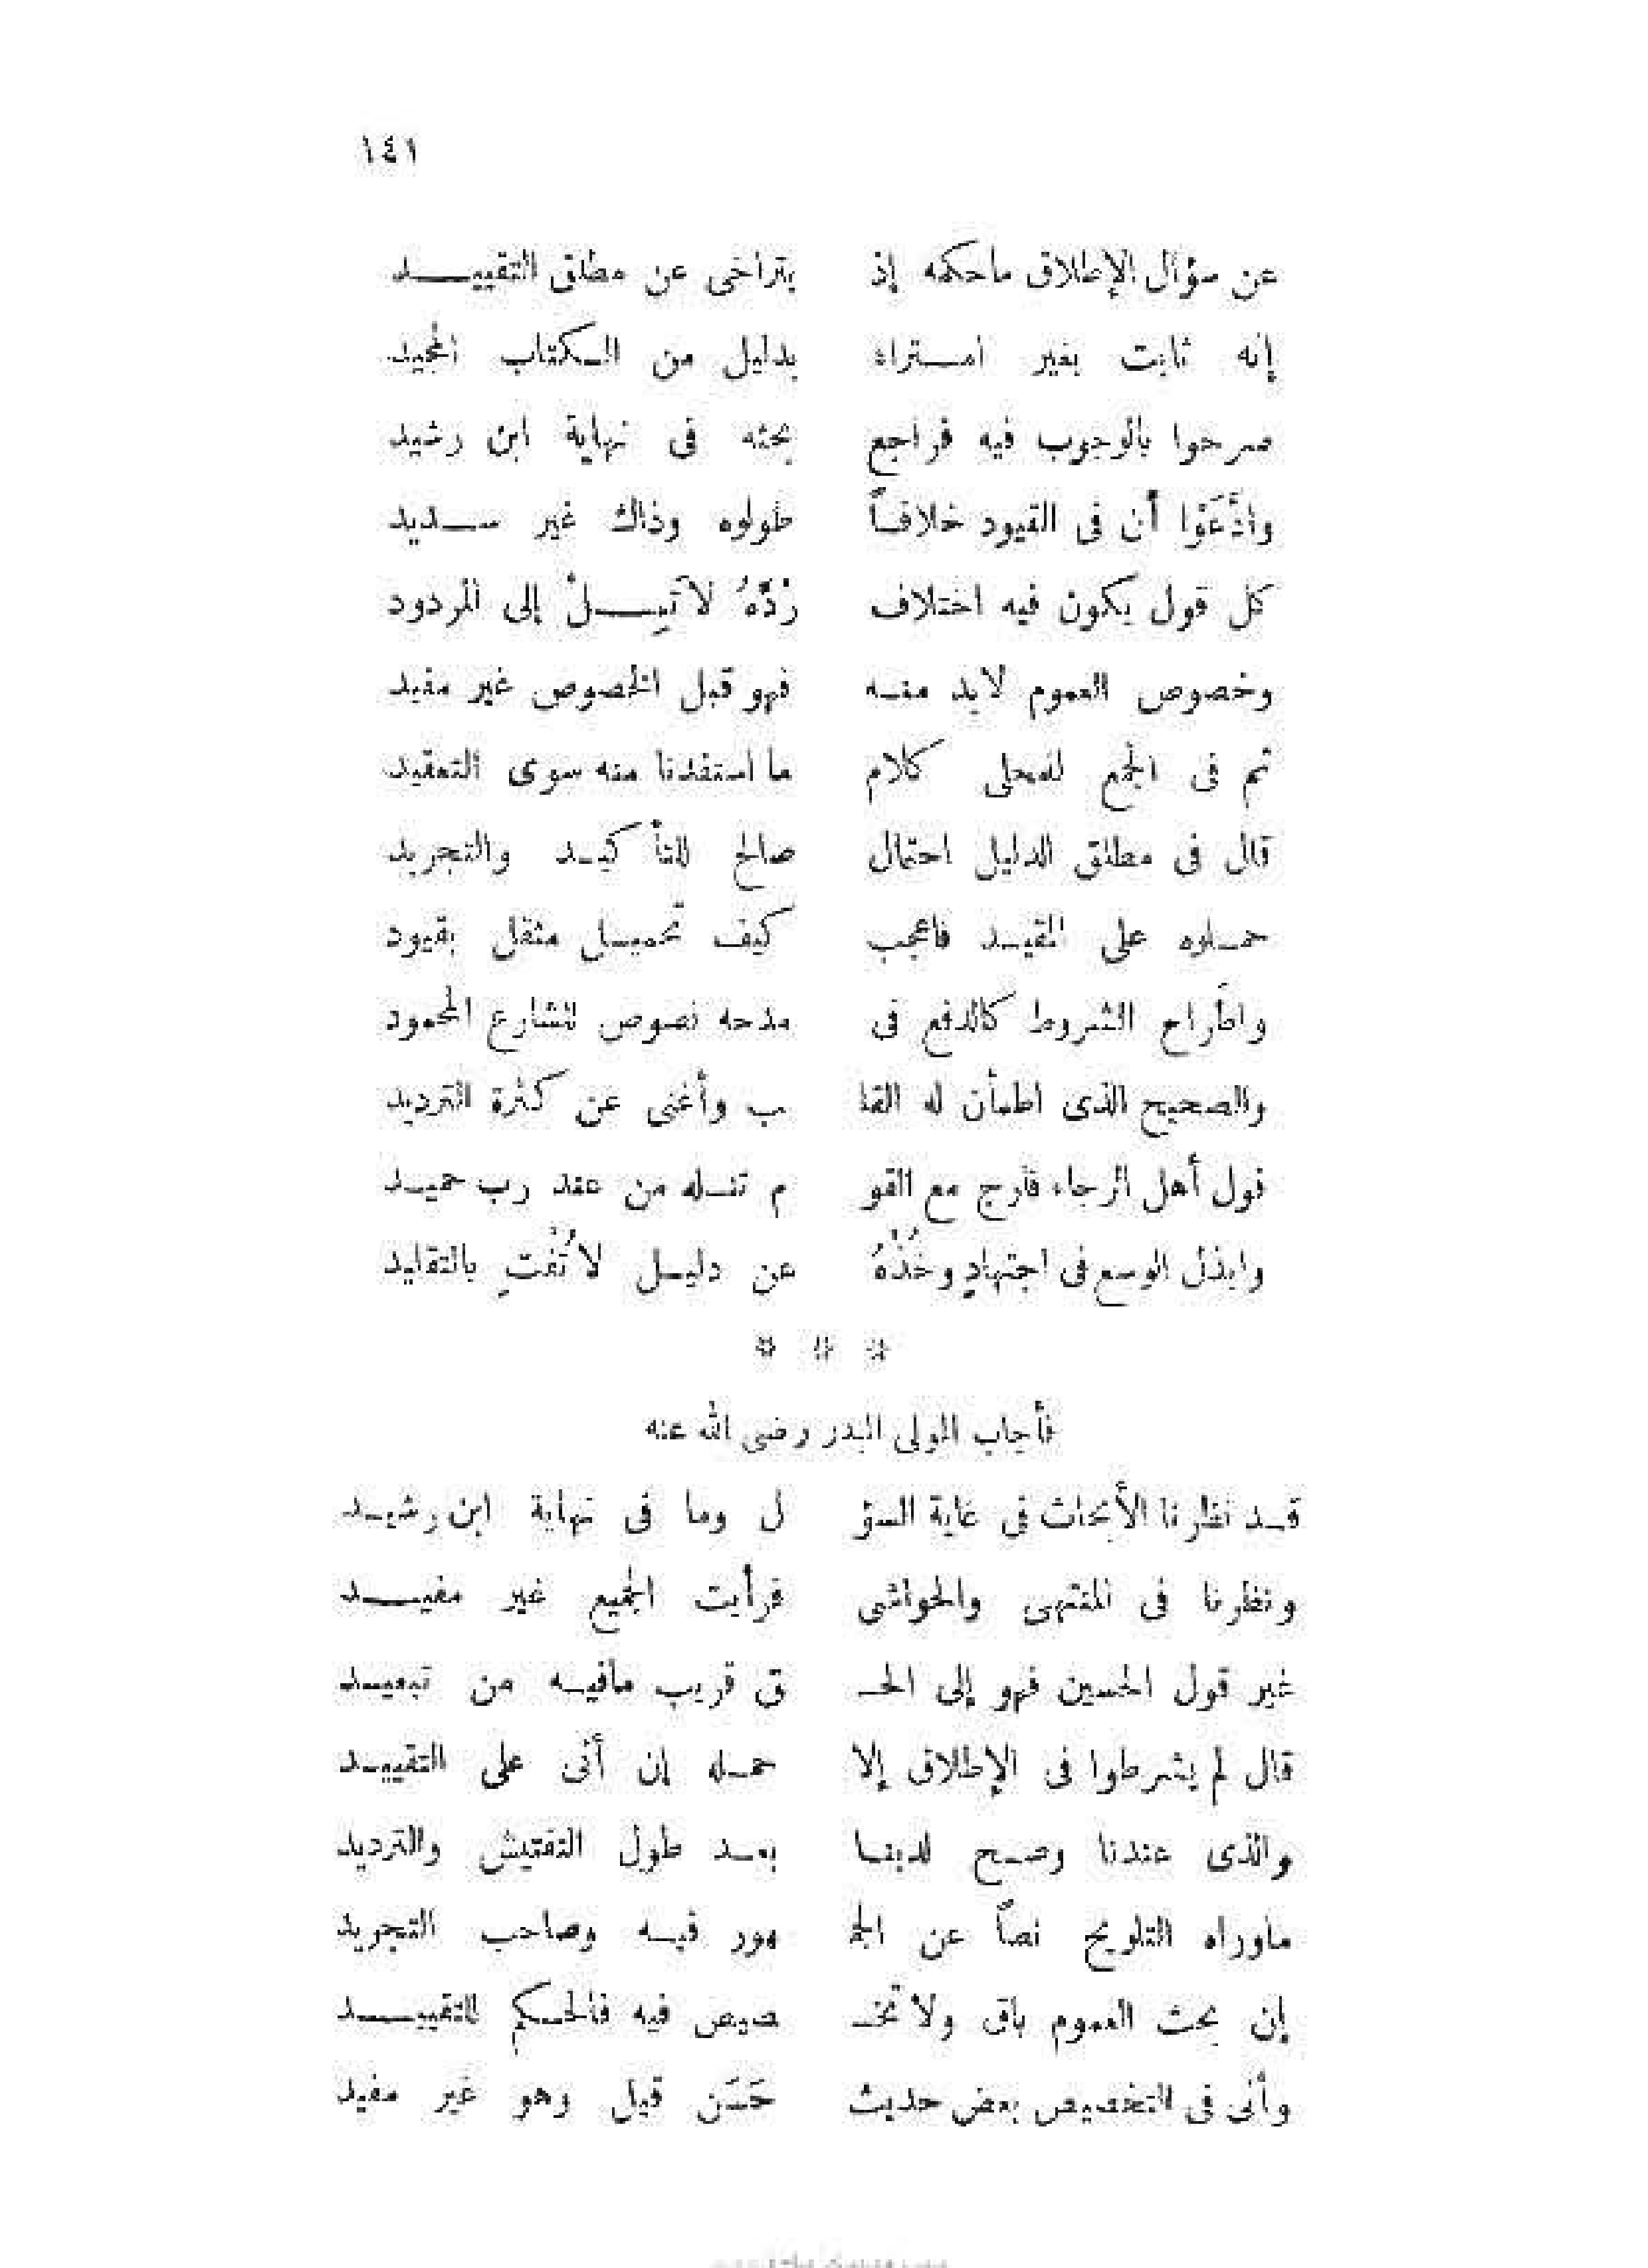 ١٤١
عن سؤال الإطلاق ماحكمه إذ يتراخى عن مطلق التقييد
إنه ثابت بغير امتراء بدليل من الكتاب المجيد
صرحوا بالوجوب فيه فراجع بحثه فى نهاية ابن رشيد
وادَّعَوْا أن فى القيود خلافاً طولوه وذاك غير سديد
كل قول يكون فيه اختلاف رُدَّهُ لا تَمِلْ إلى المردود
وخصوص العموم لابد منه فهو قبل الخصوص غير مفيد
ثم فى الجمع للمحلى كلام ما استفدنا منه سوى التعقيد
قال فى مطلق الدليل احتمال صالح للتأكيد والتجريد
حملوه على المقيد فاعجب كيف تحميل مثقل بقيود
واطَّراح الشروط كالدفع فى مدحه نصوص للشارع المحمود
والصحيح الذى اطمأن له القلـ ب وأغنى عن كثرة الترديد
قول أهل الرجاء فارج مع القو م تنله من عند رب حميد
وابذل الوسع فى اجتهادٍ وخُذْهُ عن دليل لا تُفْتِ بالتقليد
* * *
فأجاب المولى البدر رضى الله عنه
قد نظرنا الأبحاث فى غاية السؤ ل وما فى نهاية ابن رشيد
ونظرنا فى المنتهى والحواشى فرأيت الجميع غير مفيد
غير قول الحسين فهو إلى الحـ ق قريب مافيه من تبعيد
قال لم يشرطوا فى الإطلاق إلا حمله إن أتى على التقييد
والذى عندنا وصح لدينا بعد طول التفتيش والترديد
ماوراه التلويح نصاً عن الجمـ هور فيه وصاحب التجريد
إن بحث العموم باق ولا تخـ صيص فيه فالحكم للتقييد
وأتى فى التخصيص بعض حديث حَسَن قيل وهو غير مفيد